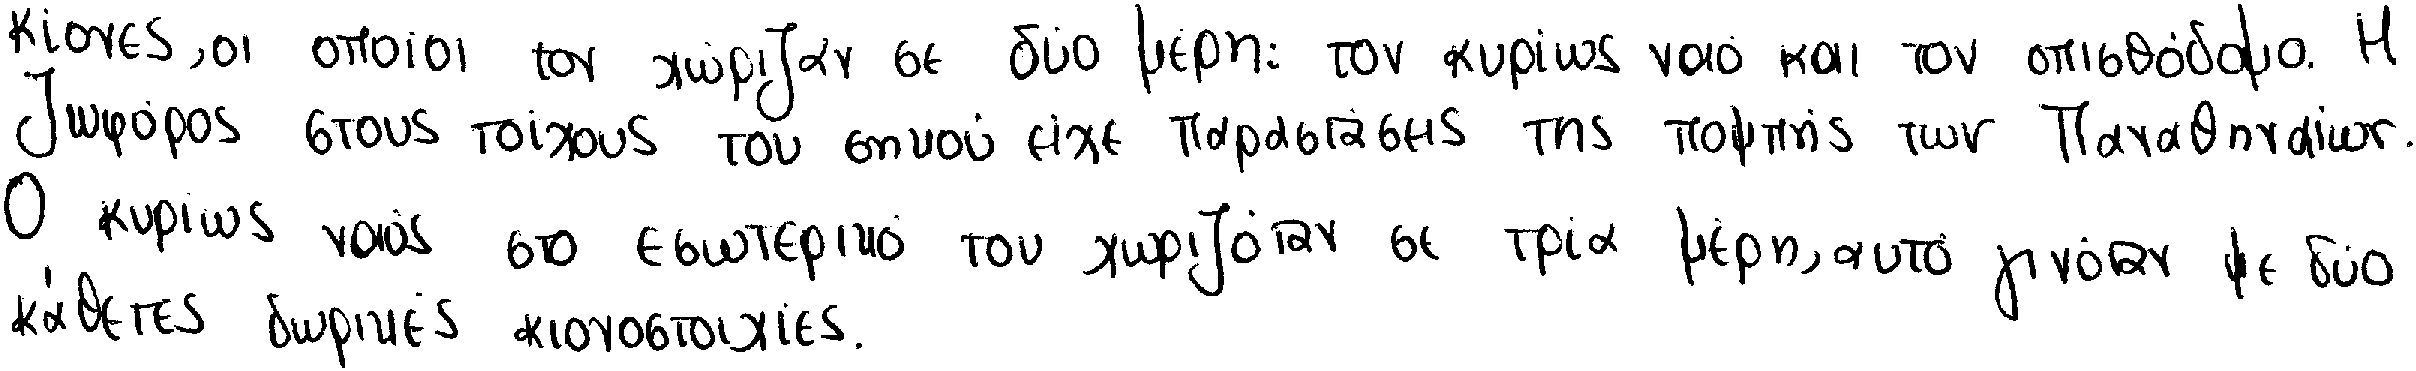 κίονες, οι οποίοι τον χώριζαν σε δύο μέρη: τον κυρίως ναό και τον οπισθόδομο. Η
ζωφόρος στους τοίχους του σηκού είχε παραστάσεις της πομπής των Παναθηναίων.
Ο κυρίως ναός στο εσωτερικό του χωριζόταν σε τρία μέρη, αυτό γινόταν με δύο
κάθετες δωρικές κιονοστοιχίες.